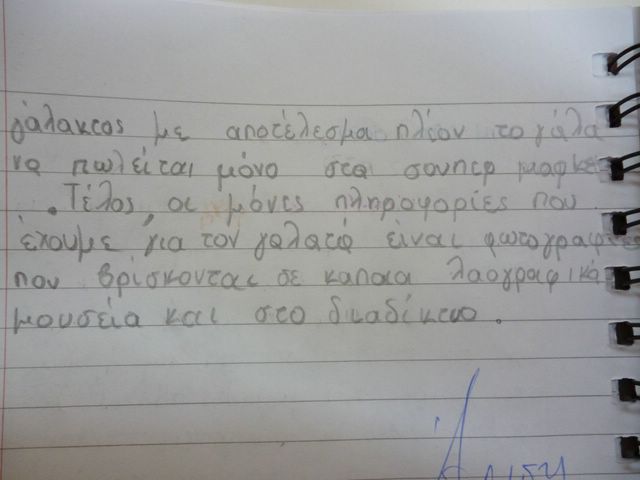 γάλακτος με αποτέλεσμα πλέον το γάλα
να πωλείται μόνο στα σουπερ μαρκε
. Τέλος, οι μόνες πληροφορίες που
έχουμε για τον γαλατά είναι φωτογραφίες
που βρίσκονται σε καποια λαογραφικά
μουσεία και στο διαδίκτυο.